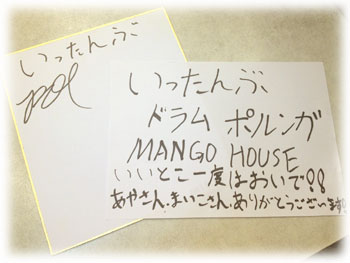 いったんぶ
いったんぶ
ドラム ポルンガ
MANGO HOUSE
いいとこ一度はおいで!!
あやさん、まいこさん、ありがとうございます!